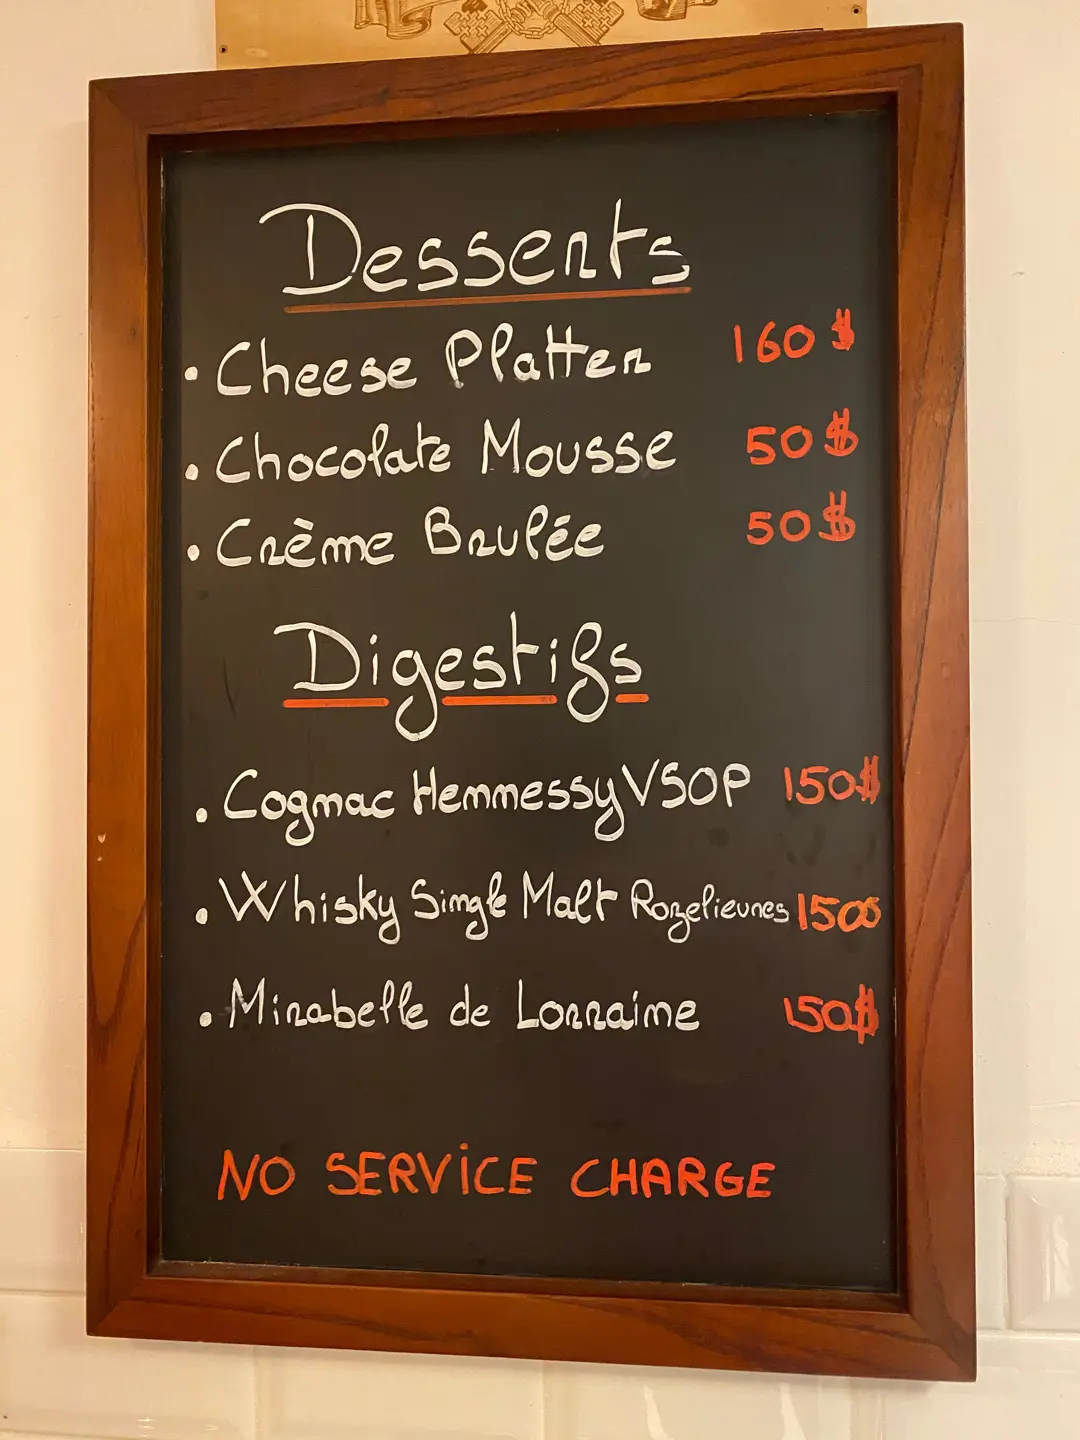 Desserts
• Cheese Platter 160 $
• Chocolate Mousse 50 $
• Crème Brulée 50 $
Digestifs
• Cognac Hennessy VSOP 150 $
• Whisky Single Malt Rozelieures 150$
• Mirabelle de Lorraine 150 $
NO SERVICE CHARGE